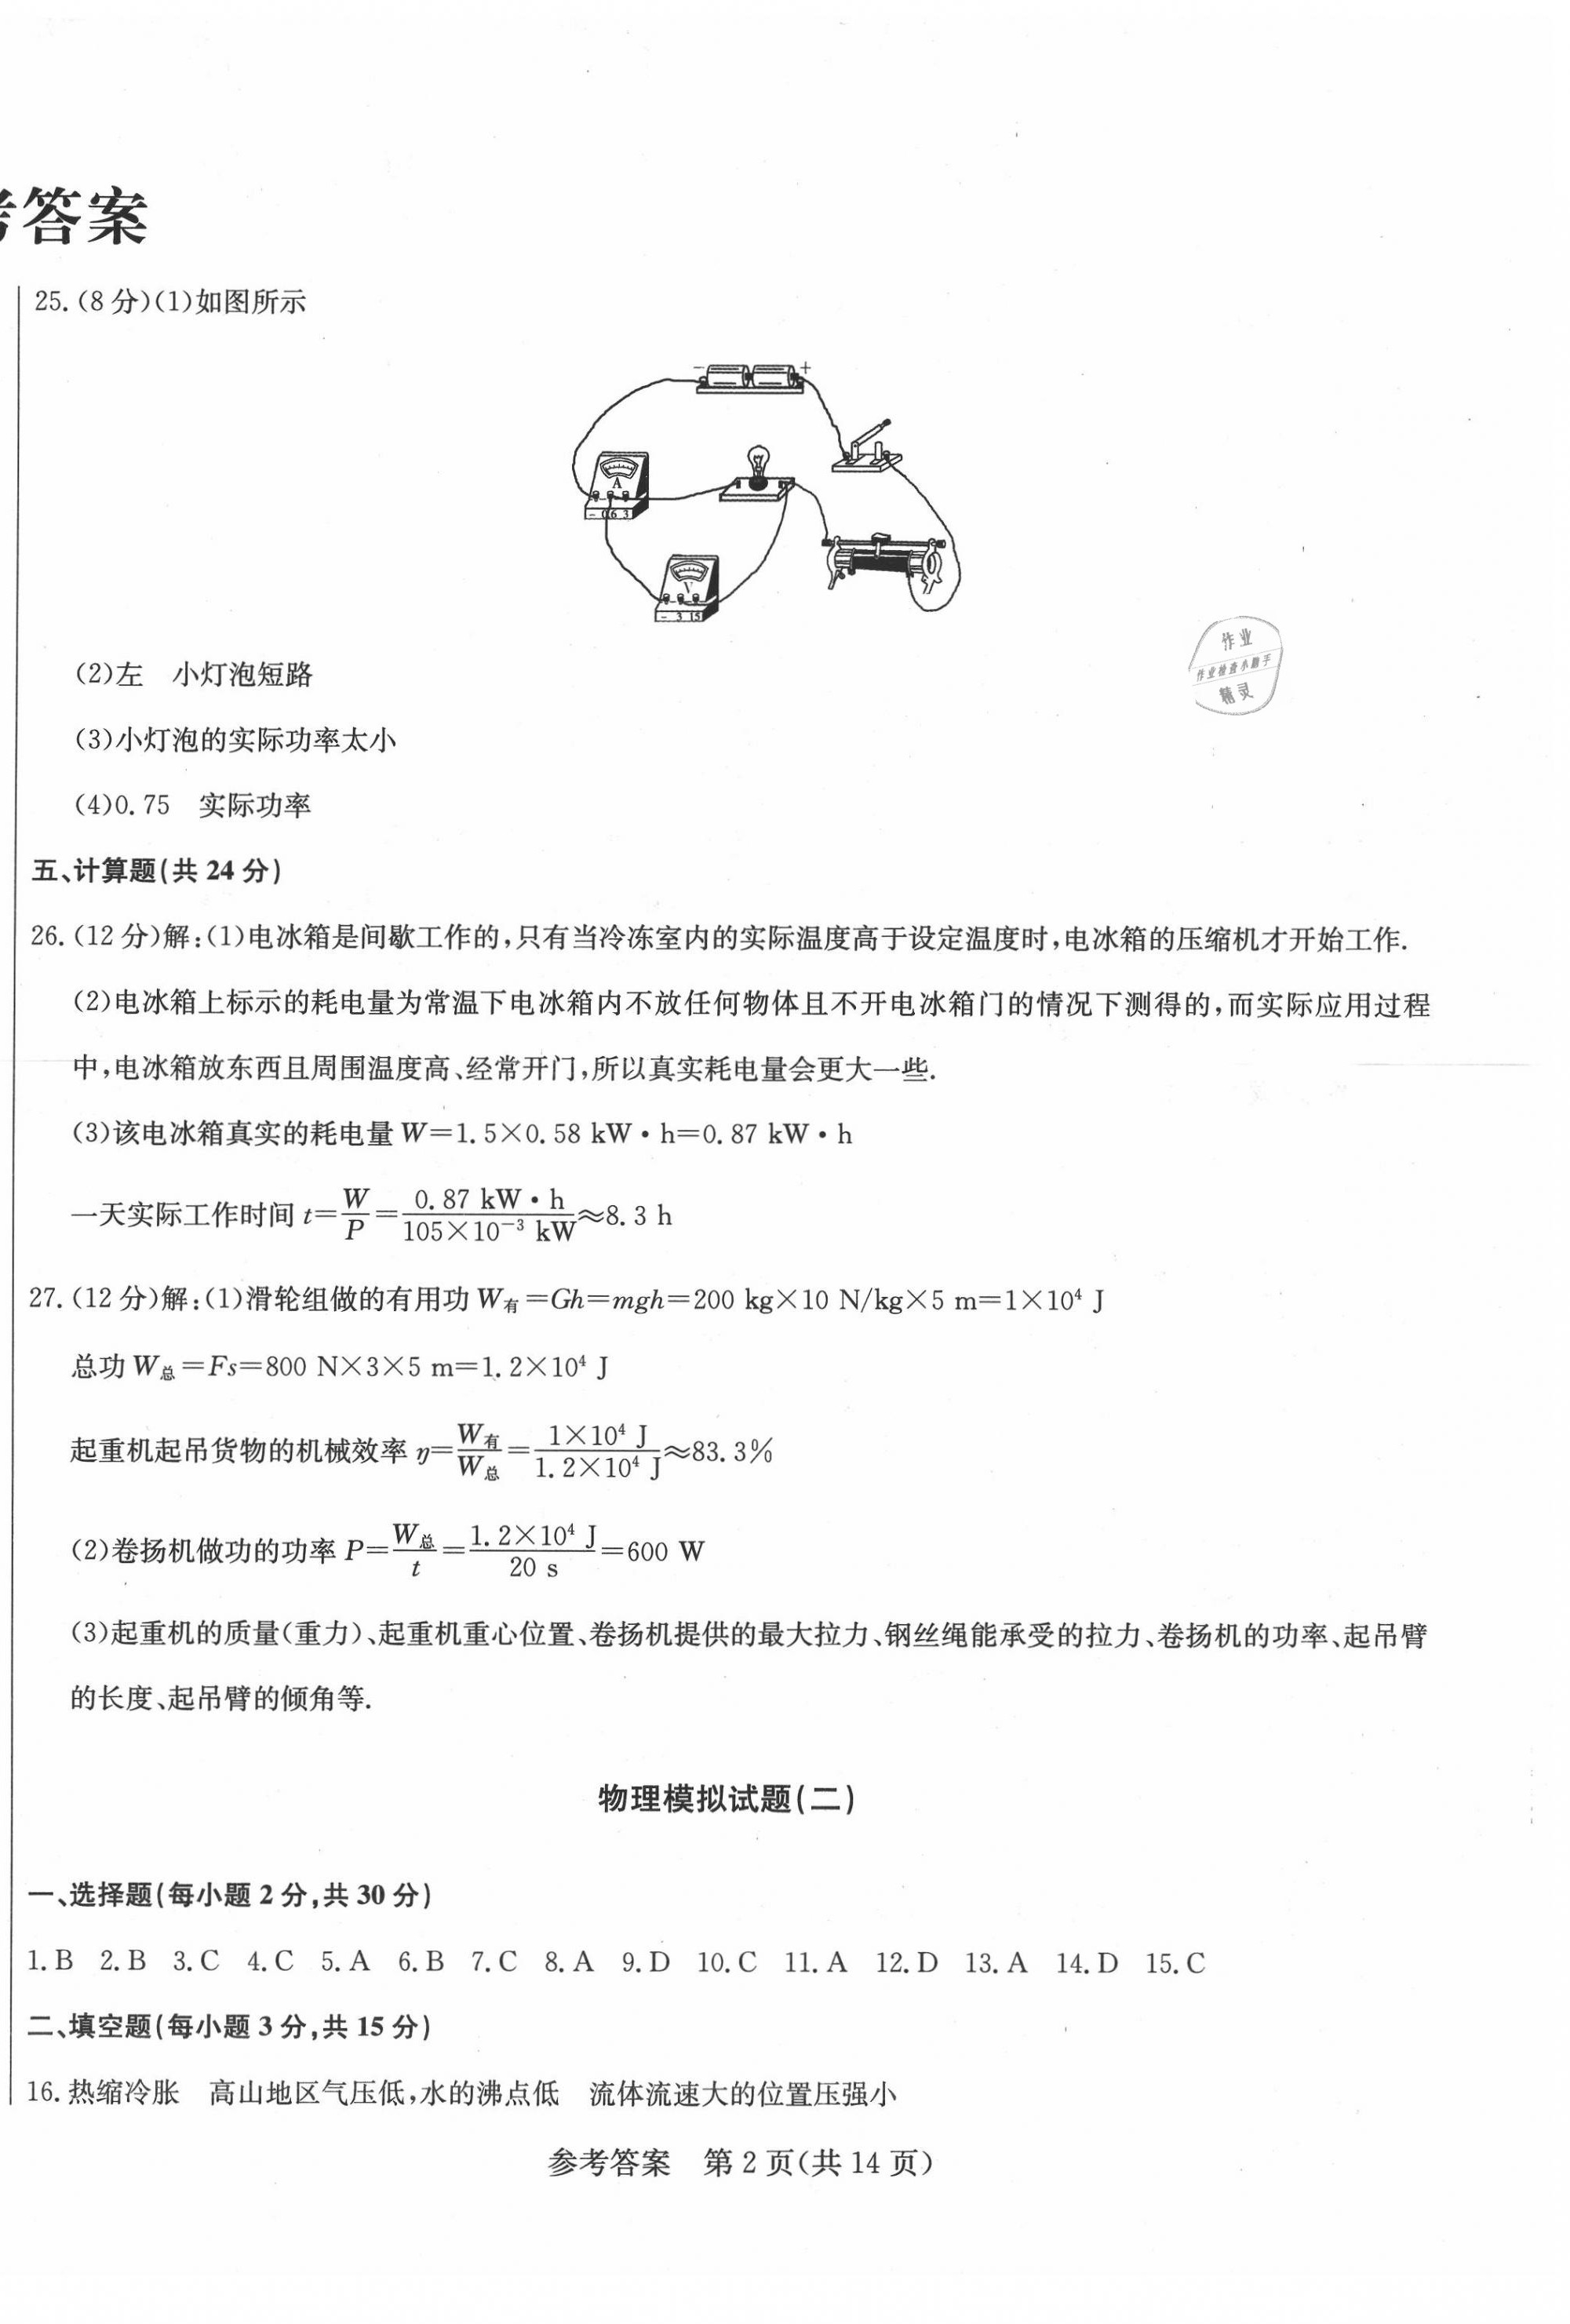 答案
25.(8分)(1)如图所示
- +
A
- 0.6 3
V
- 3 15
作业
作业检查小助手
精灵
(2)左 小灯泡短路
(3)小灯泡的实际功率太小
(4)0.75 实际功率
五、计算题(共24分)
26.(12分)解:(1)电冰箱是间歇工作的,只有当冷冻室内的实际温度高于设定温度时,电冰箱的压缩机才开始工作.
(2)电冰箱上标示的耗电量为常温下电冰箱内不放任何物体且不开电冰箱门的情况下测得的,而实际应用过程
中,电冰箱放东西且周围温度高、经常开门,所以真实耗电量会更大一些.
(3)该电冰箱真实的耗电量W=1.5×0.58 kW·h=0.87 kW·h
一天实际工作时间t=W/P=0.87 kW·h/105×10⁻³ kW≈8.3 h
27.(12分)解:(1)滑轮组做的有用功W有=Gh=mgh=200 kg×10 N/kg×5 m=1×10⁴ J
总功W总=Fs=800 N×3×5 m=1.2×10⁴ J
起重机起吊货物的机械效率η=W有/W总=1×10⁴ J/1.2×10⁴ J≈83.3%
(2)卷扬机做功的功率P=W总/t=1.2×10⁴ J/20 s=600 W
(3)起重机的质量(重力)、起重机重心位置、卷扬机提供的最大拉力、钢丝绳能承受的拉力、卷扬机的功率、起吊臂
的长度、起吊臂的倾角等.
物理模拟试题(二)
一、选择题(每小题2分,共30分)
1.B 2.B 3.C 4.C 5.A 6.B 7.C 8.A 9.D 10.C 11.A 12.D 13.A 14.D 15.C
二、填空题(每小题3分,共15分)
16.热缩冷胀 高山地区气压低,水的沸点低 流体流速大的位置压强小
参考答案 第2页(共14页)